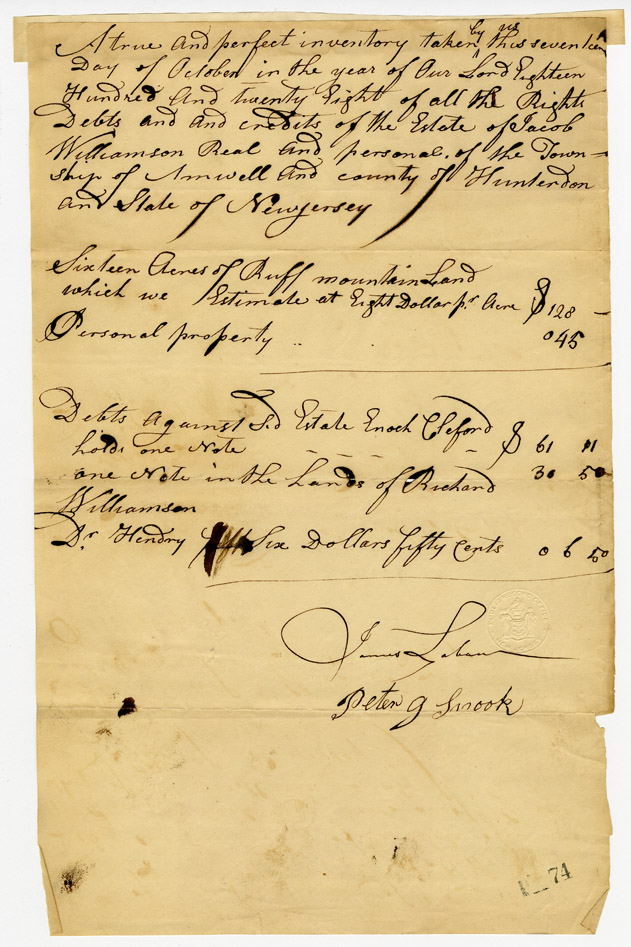 by us
A true and perfect inventory taken this seventeen
Day of October in the year of Our Lord Eighteen
Hundred And twenty Eight of all the Rights
Debts and and credits of the Estate of Jacob
Williamson Real and personal. of the Town-
ship of Amwell And county of Hunterdon
and State of Newjersey
Sixteen Acres of Ruff mountain Land
which we Estimate at Eight Dollar pr Acre $ 128 -
Personal property .. .. 045
Debts Against Sd Estate Enoch
holds one Note - - - - $ 61 11
one Note in the hands of Richard 30 50
Williamson
Dr Hendry Six Dollars fifty Cents 0 6 50
James
Peter g Snook
74